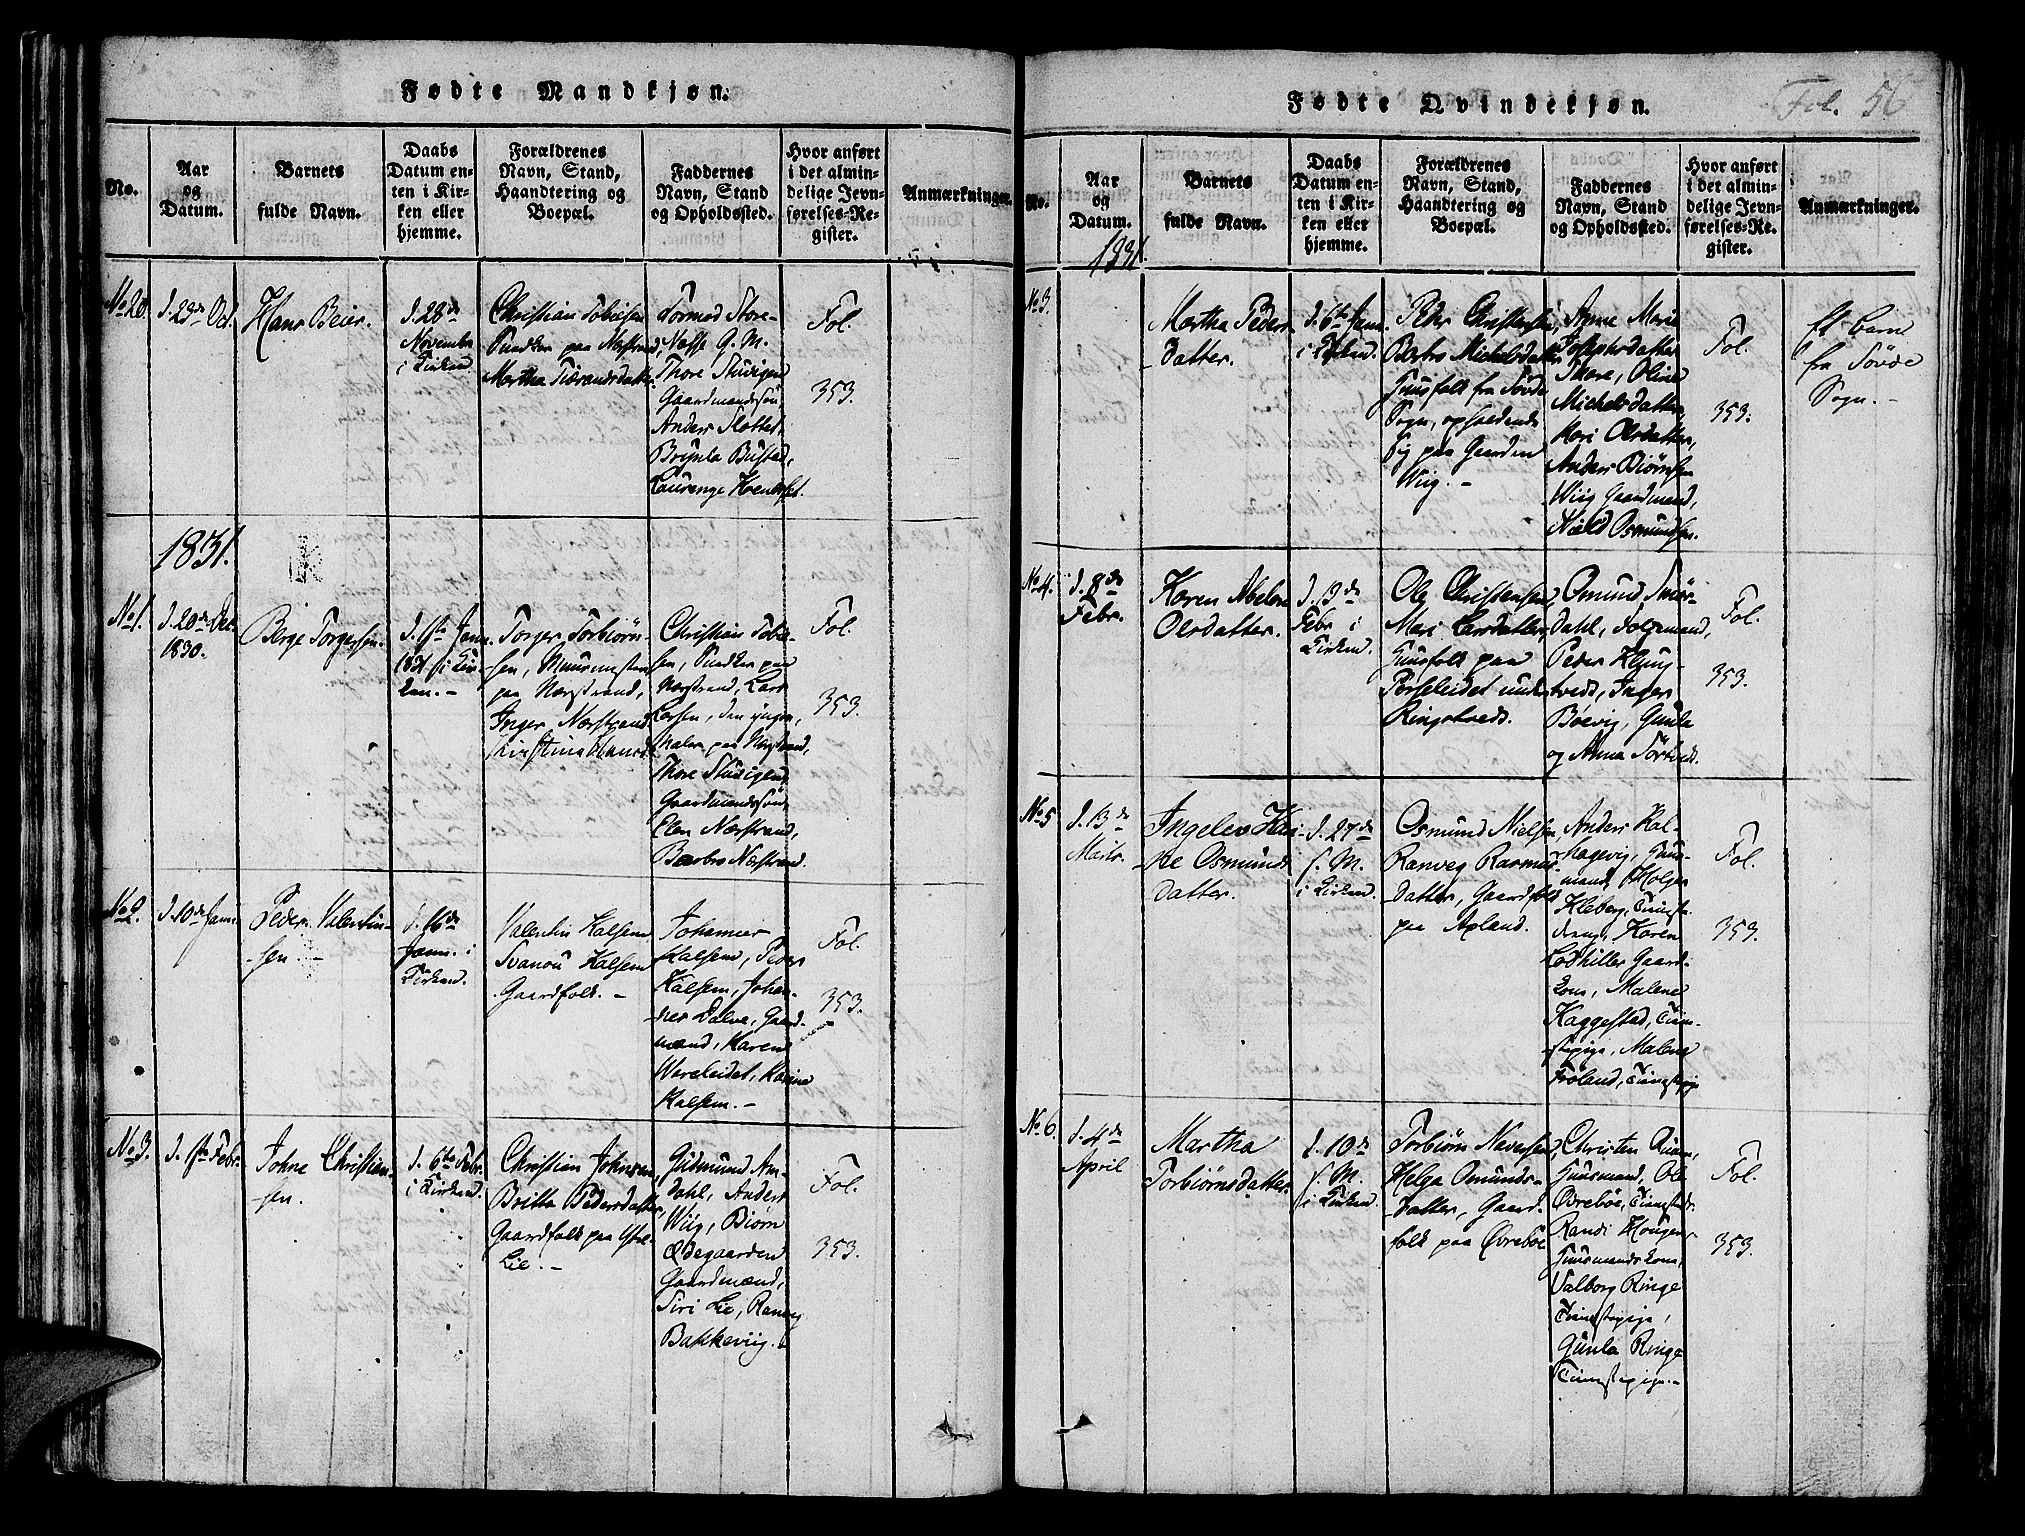 Fødte Mandkjøn.
No.
Aar
og
Datum.
Barnets
fulde Navn.
Daabs
Datum en-
ten i Kir-
ken eller
hjemme.
Forældrenes
Navn, Stand,
Haandtering og
Boepæl.
Faddernes
Navn, Stand
og Opholdssted.
Hvor anført
i det almin-
delige Jevn-
førelses-Re-
gister.
Anmærkninger.
No 20.
d. 29de Oct.
Hans Beier.
d. 28de
Novembr
i Kirken
Christian Tobiesen
Snedker paa Nærstrand,
Martha
Tormod Store-
Næss G. M.
Thore
Gaardmandssøn,
Anders Slottet,
Brynla Bustad,
Laurenze
Fol.
353.
1831.
No 1.
d. 20de Dec.
1830.
Børge Torgersen.
d. 1ste Janu.
1831 i Kir-
ken. -
Torger Torbiørn-
sen, Muurmester
paa Nærstrand,
Inger Nærstrand
Christian Tobie-
sen, Snedker paa
Nærstrand, Lars
Larsen, den yngre,
Maler paa Nærstrand,
Thore
Gaardmandssøn,
Elen Nærstrand,
Barbro Nærstrand.
Fol.
353.
No 2.
d. 10de Janu.
Peder Valentin-
sen. -
d. 16de
Janu. i
Kirken.
Valentin Halsem
Svanou Halsem
Gaardfolk. -
Johannes
Halsem, Peder
Halsem, Johan-
nes Dalve, Gaard-
mænd, Karen
Wareleidet, Karine
Halsem. -
Fol.
353.
No 3.
d. 1ste Febr.
Johne Christian-
sen.
d. 6te Febr.
i Kirken.
Christian Johnsen
Britha Pedersdatter,
Gaardfolk paa
Lie. -
Gudmund Am-
dahl, Anders
Wiig, Biørn
Ødegaarden
Gaardmænd,
Siri Lie, Ranveg
Bakkeviig.
Fol.
353.
Fødte Qvindekjøn.
Fol. 56
No.
Aar
og
Datum.
Barnets
fulde Navn.
Daabs
Datum en-
ten i Kir-
ken eller
hjemme.
Forældrenes
Navn, Stand,
Haandtering og
Boepæl.
Faddernes
Navn, Stand
og Opholdssted.
Hvor anført
i det almin-
delige Jevn-
førelses-Re-
gister.
Anmærkninger.
1831.
No 3.
Martha Peders-
datter.
d. 6te Janu.
i Kirken.
Peder Christensen,
Barbro Michelsdatter
Huusfolk fra Søvde
Sogn, opholdende
sig paa Gaarden
Wiig. -
Anne Marie
Josephsdatter
Thore, Oline
Michelsdatter,
Kari Olsdatter,
Anders Biørnsen
Wiig Gaardmand,
Niels Osmundsen.
Fol.
353.
Et barn
fra Søvde
Sogn. -
No 4.
d. 8de
Febr.
Karen Abelone
Olsdatter.
d. 13de
Febr i
Kirken.
Ole Christensen,
Mari Larsdatter,
Huusfolk paa
Porseleidet under
Ringstveds.
Osmund
Dahl,
Peder Kljung-
tvedt, Inger
Bøevig, Gunla
og Anna Tørtvedt.
Fol.
353.
No 5
d. 13de
Marts.
Ingelev
Osmunds
datter.
d. 27de
s. M.
i Kirken.
Osmund Nielsen
Ranveg Rasmus-
datter, Gaardfolk
paa Apland.
Anders Hal-
Huus-
mand, Holger
Kleberg, Tieneste-
dreng, Karen
Lodhiller Gaard-
kone, Malene
Haggestad, Tiene-
stepige, Malene
Frøland, Tienestepige
Fol.
353.
No 6.
d. 4de
April
Martha
Torbiørnsdatter.
d. 10de
s. M.
i Kirken.
Torbiørn
Helga Osmunds-
datter, Gaard-
folk paa Øvrebøe
Christen
Huusmand, Ole
Øvrebøe,
Randi Hougen
Huusmands kone,
Valborg Ringe
Tienestepige,
Gunla Ringe
Tienestepige. -
Fol.
353.